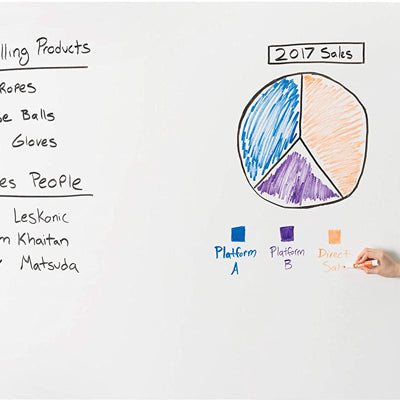 lling Products
Ropes
se Balls
Gloves
es People
Leskonic
m Khaitan
Matsuda
2017 Sales
Platform
A
Platform
B
Direct
Sal